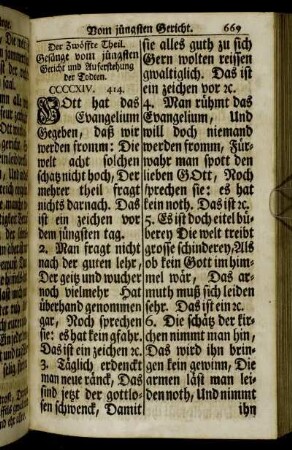 Vom jüngsten Gericht. 669
Der Zwölffte Theil.
Gesänge vom jüngsten
Gericht und Aufferstehung
der Todten.
CCCCXIV. 414.
GOtt hat das
Evangelium
Gegeben, daß wir
werden fromm: Die
welt acht solchen
schatz nicht hoch, Der
mehrer theil fragt
nichts darnach. Das
ist ein zeichen vor
dem jüngsten tag.
2. Man fragt nicht
nach der guten lehr,
Der geitz und wucher
noch vielmehr Hat
überhand genommen
gar, Noch sprechen
sie: es hat kein gfahr.
Das ist ein zeichen ꝛc.
3. Täglich erdenckt
man neue ränck, Das
sind jetzt der gottlo-
sen schwenck, Damit
sie alles guth zu sich
Gern wolten reissen
gwaltiglich. Das ist
ein zeichen vor ꝛc.
4. Man rühmt das
Evangelium, Und
will doch niemand
werden fromm, Für-
wahr man spott den
lieben GOtt, Noch
sprechen sie: es hat
kein noth. Das ist ꝛc.
5. Es ist doch eitel bü-
berey Die welt treibt
grosse schinderey, Als
ob kein Gott im him-
mel wär, Das ar-
muth muß sich leiden
sehr. Das ist ein ꝛc.
6. Die schätz der kir-
chen nimmt man hin,
Das wird ihn brin-
gen kein gewinn, Die
armen läst man lei-
den noth, Und nimmt
ihn